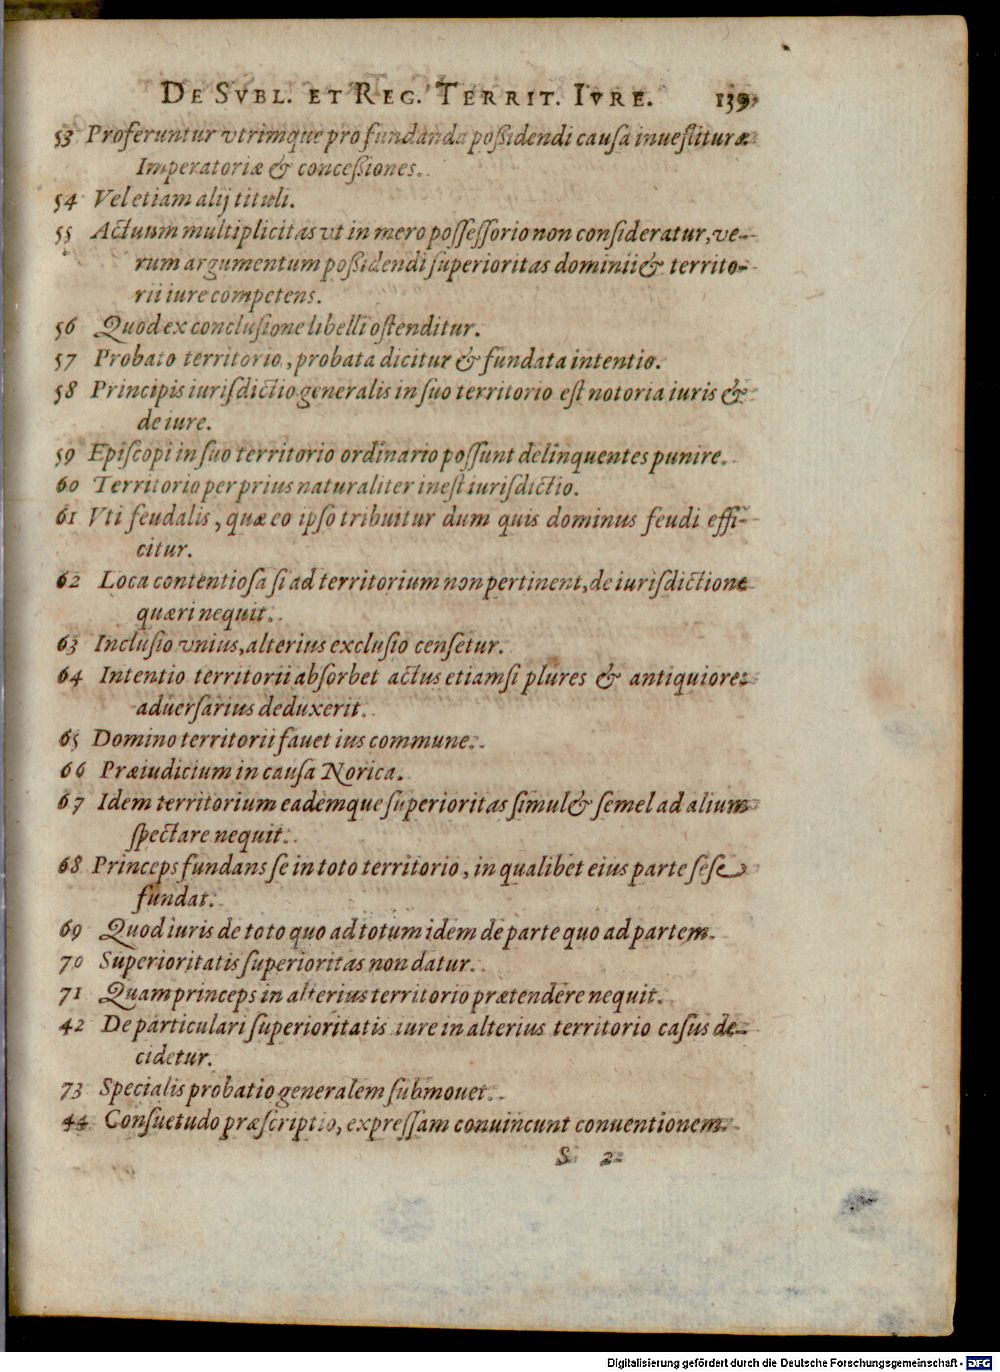 DE SVBL. ET REG. TERRIT. IVRE. 139
53 Proferuntur vtrimque pro fundanda poßidendi causa inuestituræ
Imperatoriæ & conceßiones.
54 Vel etiam alij tituli.
55 Actuum multiplicitas vt in mero possessorio non consideratur, ve-
rum argumentum poßidendi superioritas dominii & territo-
rii iure competens.
56 Quod ex conclusione libelli ostenditur.
57 Probato territorio, probata dicitur & fundata intentio.
58 Principis iurisdictio generalis in suo territorio est notoria iuris &
de iure.
59 Episcopi in suo territorio ordinario possunt delinquentes punire.
60 Territorio per prius naturaliter inest iurisdictio.
61 Vti feudalis, quæ eo ipso tribuitur dum quis dominus feudi effi-
citur.
62 Loca contentiosa si ad territorium non pertinent, de iurisdictione
quæri nequit.
63 Inclusio vnius, alterius exclusio censetur.
64 Intentio territorii absorbet actus etiamsi plures & antiquiores
aduersarius deduxerit.
65 Domino territorii fauet ius commune.
66 Præiudicium in causa Norica.
67 Idem territorium eademque superioritas simul & semel ad alium
spectare nequit.
68 Princeps fundans se in toto territorio, in qualibet eius parte sese
fundat.
69 Quod iuris de toto quo ad totum idem de parte quo ad partem.
70 Superioritatis superioritas non datur.
71 Quam princeps in alterius territorio prætendere nequit.
42 De particulari superioritatis iure in alterius territorio casus de-
cidetur.
73 Specialis probatio generalem submouet.
44 Consuetudo præscriptio, expressam conuincunt conuentionem.
S 2
Digitalisierung gefördert durch die Deutsche Forschungsgemeinschaft - DFG